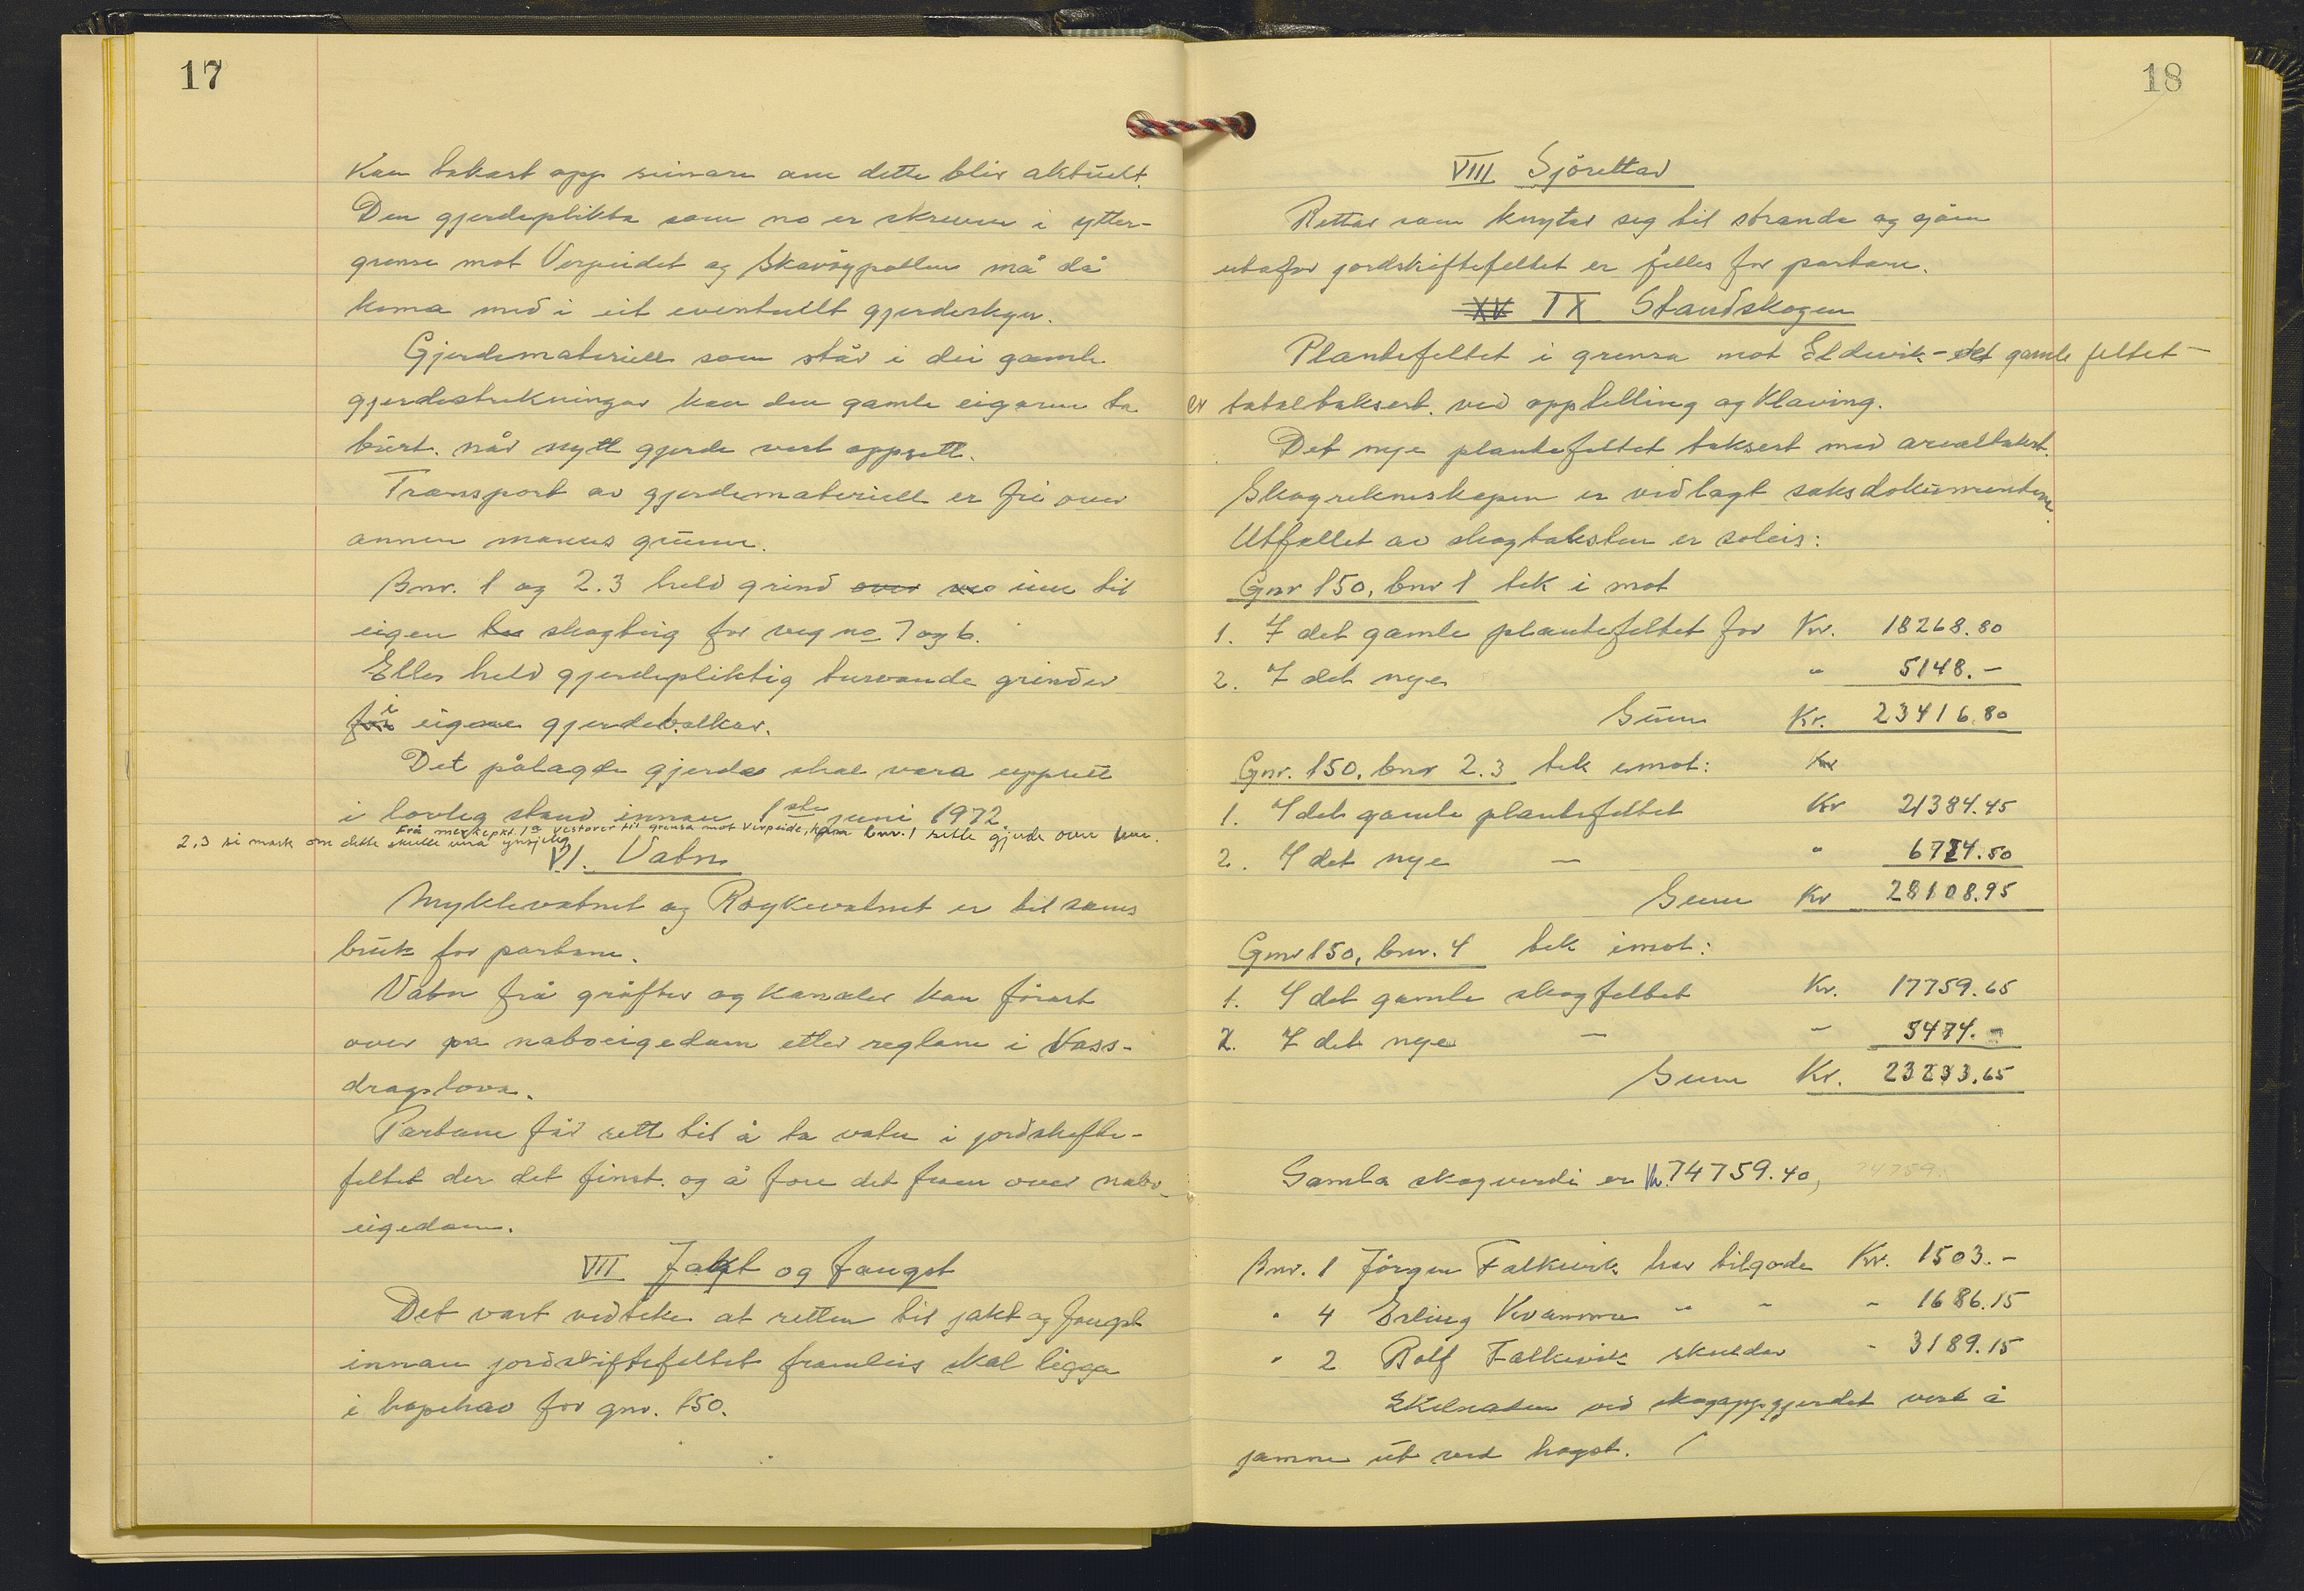 17
Kan takast opp seinare om dette blir aktuelt.
Den gjerdeplikta som no er skreven i ytter-
grense mot Verpeidet og Skavøypollen må då
koma med i eit eventuellt gjerdeskjøn.
Gjerdemateriell som står i dei gamle
gjerdestrekningar kan den gamle eigaren ta
burt. når nytt gjerde vert oppsett.
Transport av gjerdemateriell er fri over
annen manns grunn.
Bnr. 1 og 2.3 held grind over inn til
eigen skogteig for veg no 7 og 6.
Elles held gjerdepliktig turvande grinder
for i eigene gjerdebolkar.
Det pålagde gjerde skal vera uppsett
i lovleg stand innan 1ste juni 1972
Frå merkepkt. 1a vestover til grensa mot Verpeide, kan bnr. 1 sette gjerde over bnr.
2,3 si mark om dette skulle vera ynsjeleg
VI. Vatn
Myklevatnet og Røykevatnet er til sams
bruk for partane.
Vatn frå grøfter og kanaler kan førast
over på naboeigedom etter reglane i Vass-
dragslova.
Partane får rett til å ta vatn i jordskifte-
feltet der det finst. og å føre det fram over nabo-
eigedom.
VII Jakt og fangst
Det vart vedteke at retten til jakt og fangst
innan jordskiftefeltet framleis skal ligge
i hopehav for gnr. 150.
18
VIII Sjørettar
Rettar som knytar seg til strande og sjøen
utafor jordskiftefeltet er felles for partane.
XV IX Standskogen
Plantefeltet i grensa mot Eldevik - det gamle feltet -
er totaltaksert. ved opptelling og klaving.
Det nye plantefeltet taksert med arealtakst.
Skogrekneskapen er vedlagt saksdokumentene.
Utfallet av skogtaksten er soleis:
Gnr 150, bnr 1 tek i mot
1. I det gamle plantefeltet for Kr. 18268.80
2. I det nye " 5148.-
Sum Kr. 23416.80
Gnr. 150. bnr 2.3 tek imot: Kr
1. I det gamle plantefeltet Kr 21384.45
2. I det nye — " 6724.50
Sum Kr 28108.95
Gnr 150, bnr. 4 tek imot:
1. I det gamle skogfeltet Kr. 17759.65
2. I det nye — - 5474.-
Sum Kr. 23233.65
Samla skogverdi er kr. 74759.40, 74759.
Bnr. 1 Jörgen Falkevik har tilgode Kr. 1503.-
" 4 Erling Kvamme " - - 1686.15
" 2 Rolf Falkevik skuldar - 3189.15
Skilnaden ved skogoppgjerdet vert å
jamne ut ved hogst.